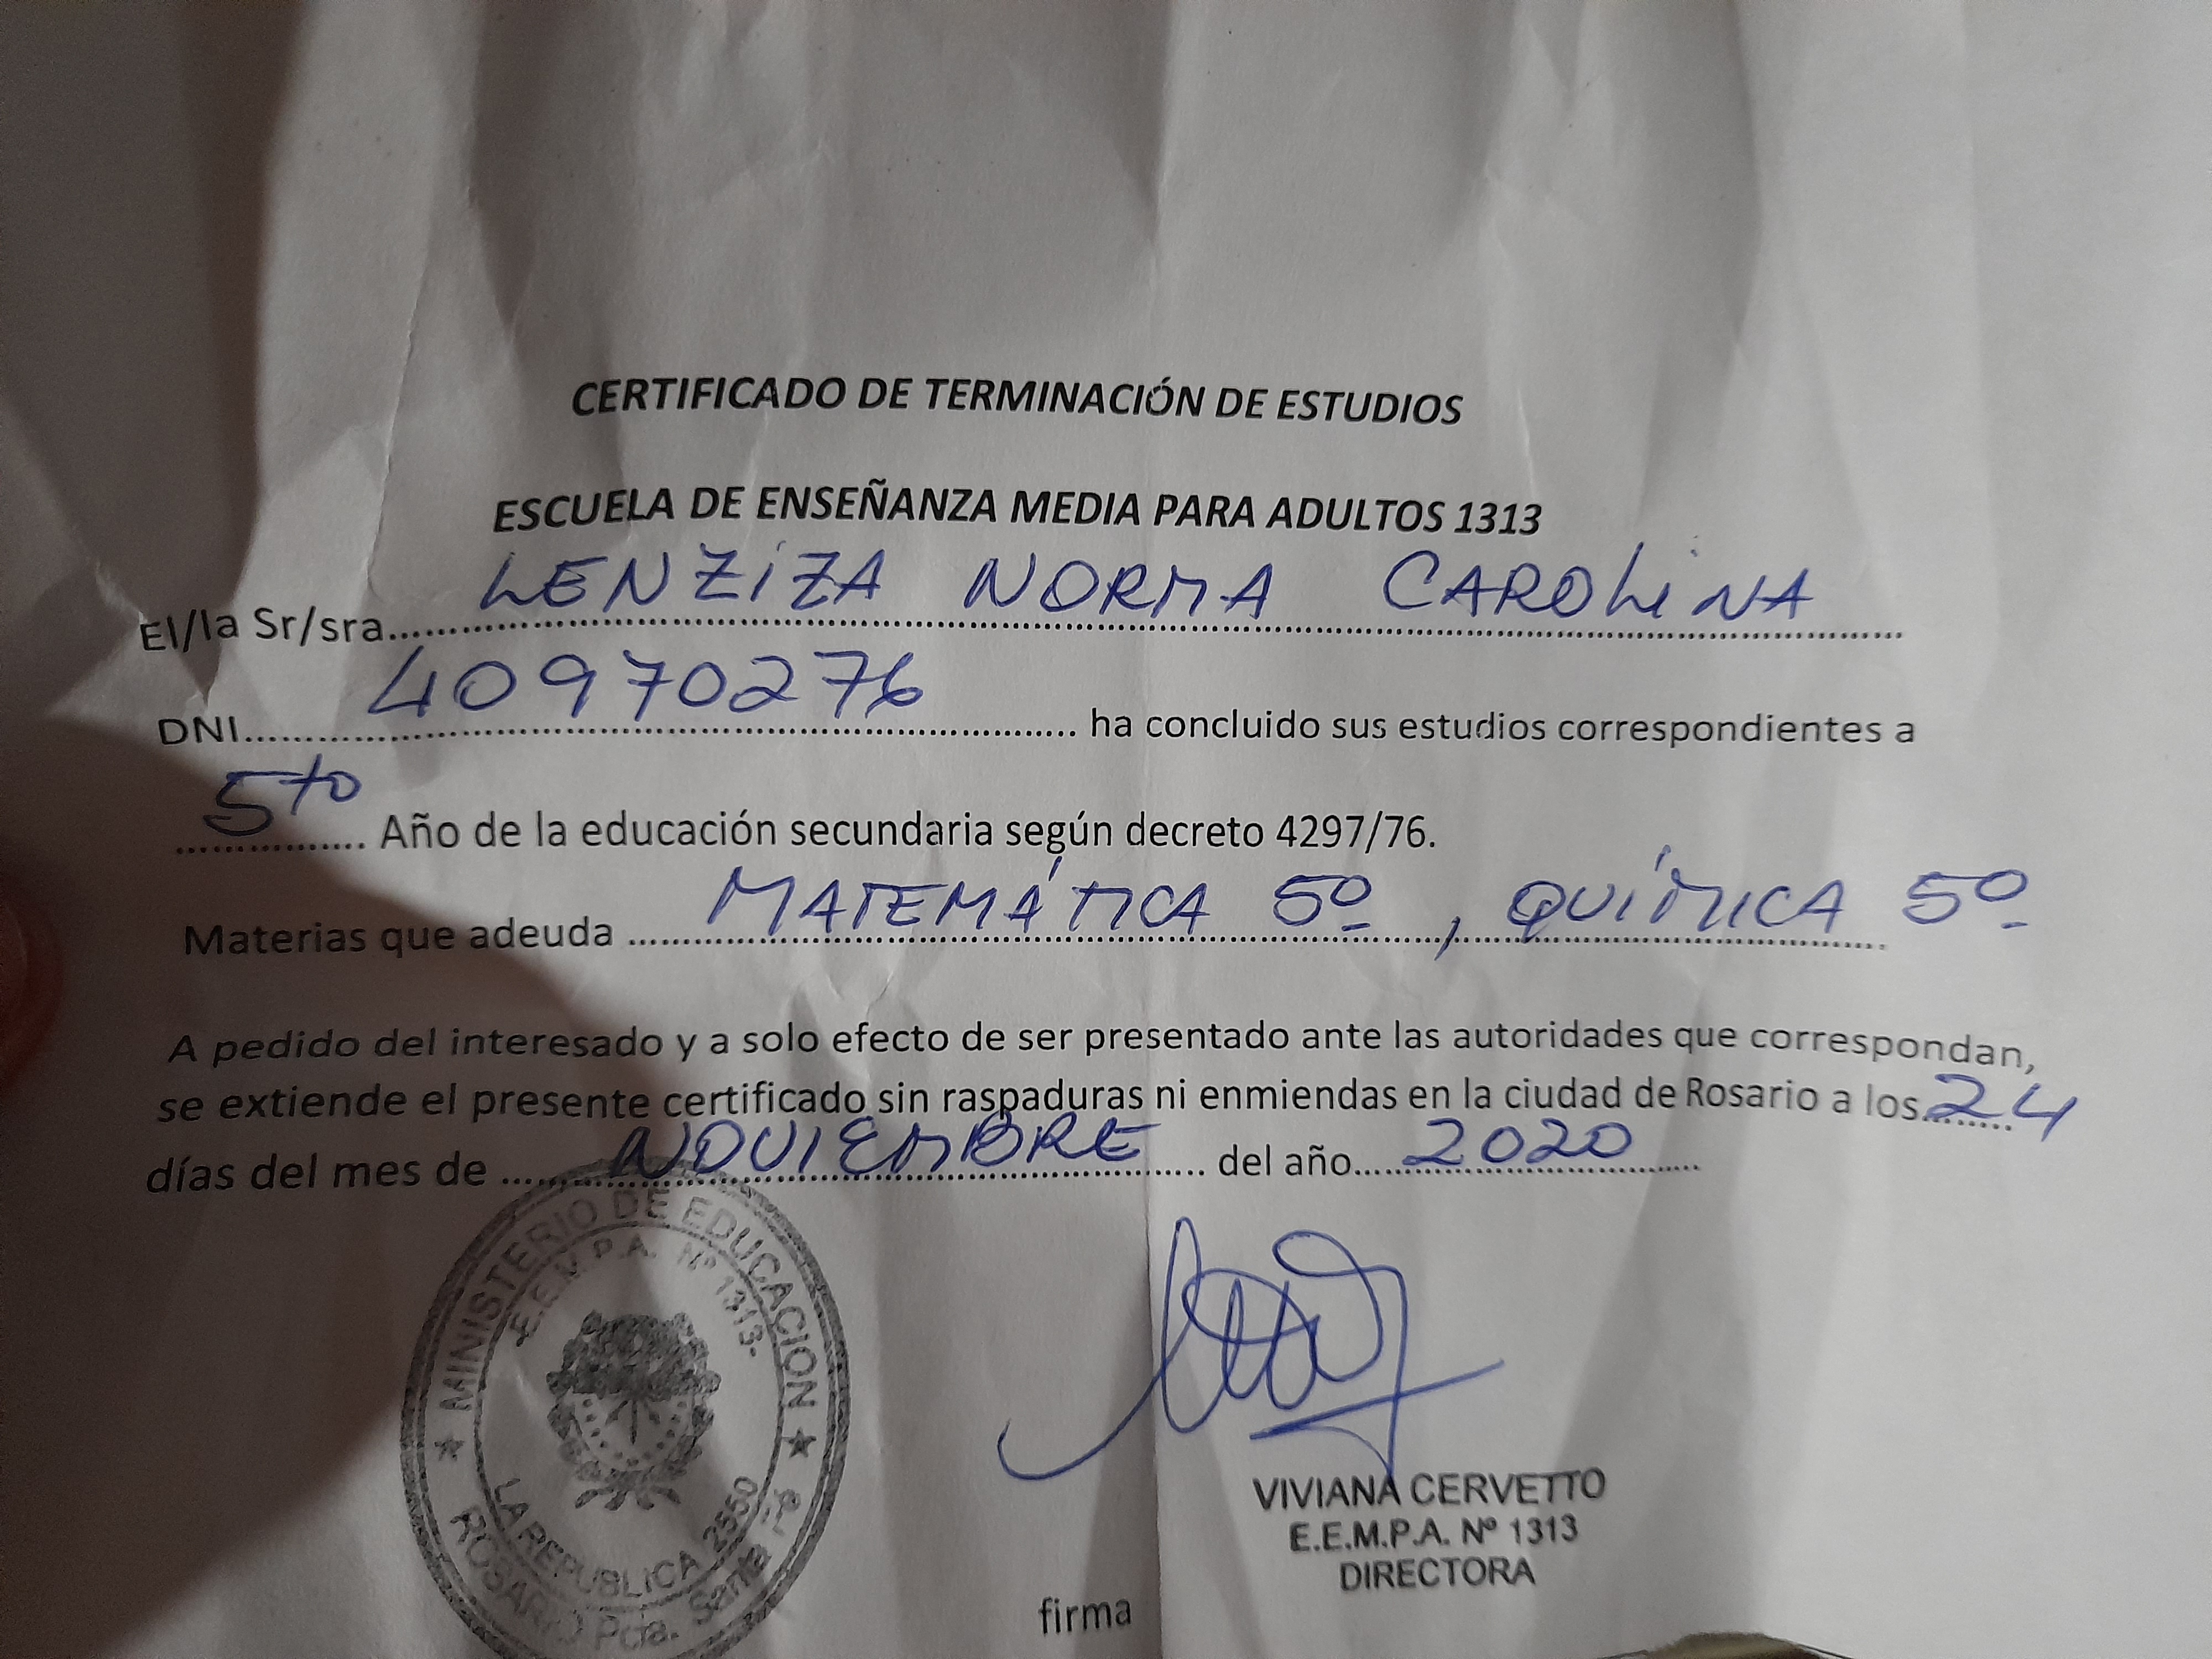 CERTIFICADO DE TERMINACIÓN DE ESTUDIOS
ESCUELA DE ENSEÑANZA MEDIA PARA ADULTOS 1313
El/la Sr/sra. LENZIZA NORMA CAROLINA
DNI 40970276 ha concluido sus estudios correspondientes a
5to Año de la educación secundaria según decreto 4297/76.
Materias que adeuda MATEMÁTICA 5º, QUÍMICA 5º
A pedido del interesado y a solo efecto de ser presentado ante las autoridades que correspondan,
se extiende el presente certificado sin raspaduras ni enmiendas en la ciudad de Rosario a los 24
días del mes de NOVIEMBRE del año 2020
MINISTERIO DE EDUCACION
E.E.M.P.A. Nº 1313-
LA REPUBLICA 2550
ROSARIO Pcia. Santa Fe
VIVIANA CERVETTO
E.E.M.P.A. Nº 1313
DIRECTORA
firma